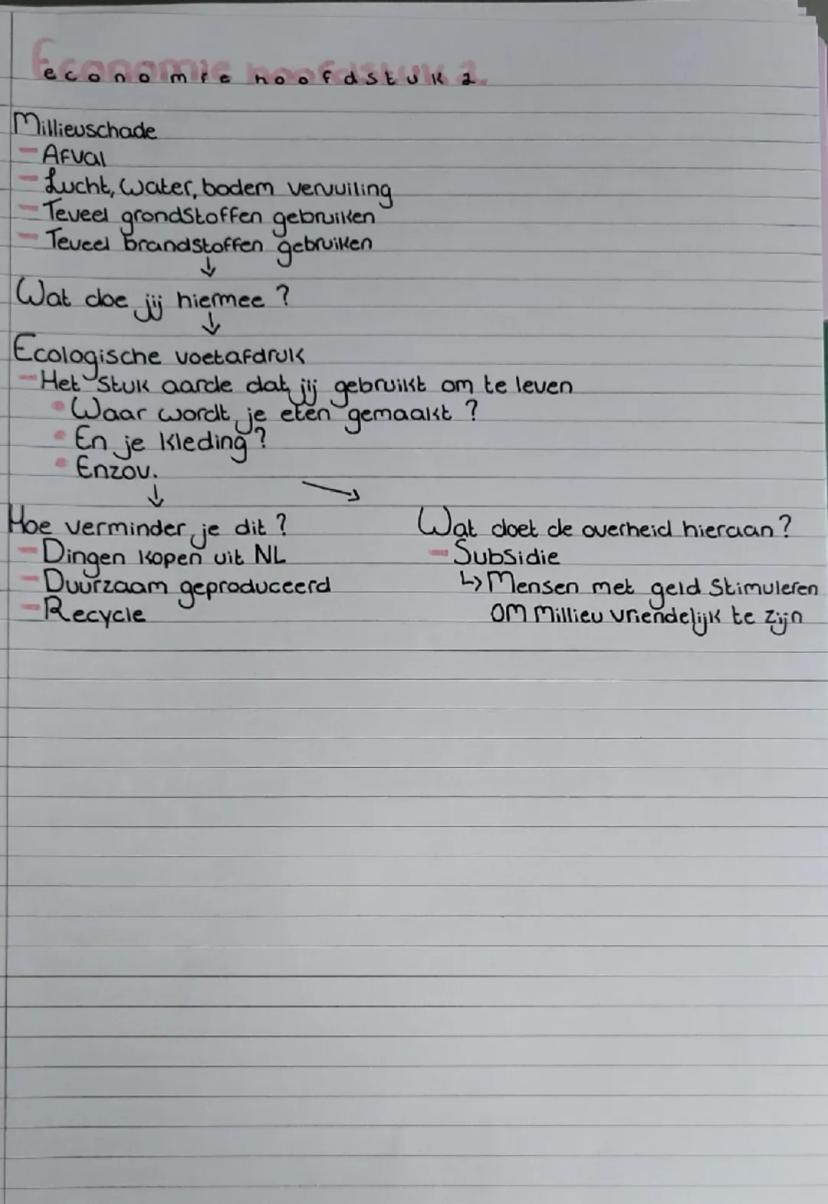 Economie hoofdstuk 2.
Millieuschade
- Afval
- Lucht, water, bodem vervuiling
- Teveel grondstoffen gebruiken
- Teveel brandstoffen gebruiken
↓
Wat doe jij hiermee?
↓
Ecologische voetafdruk
- Het stuk aarde dat jij gebruikt om te leven
• Waar wordt je eten gemaakt?
• En je kleding?
• Enzov.
↓ ↘
Hoe verminder je dit?
- Dingen kopen uit NL
- Duurzaam geproduceerd
- Recycle
Wat doet de overheid hieraan?
- Subsidie
↳ Mensen met geld stimuleren
om millieu vriendelijk te zijn